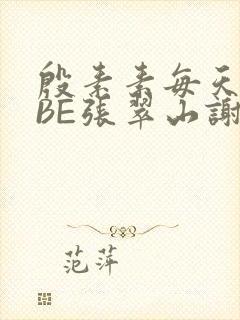 殷素素每天
BE張翠山謝
范萍